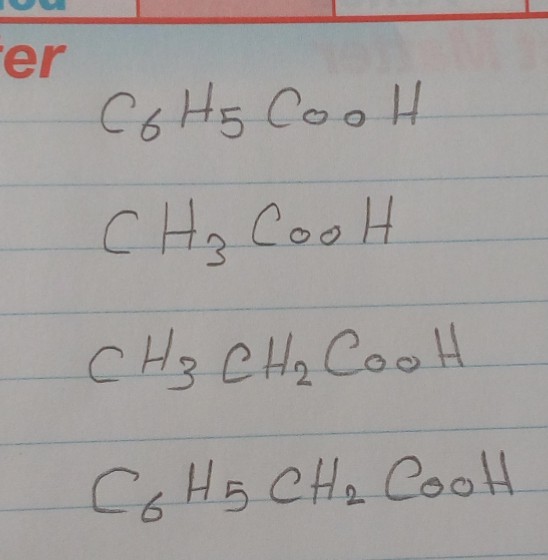 er
C6H5COOH
CH3COOH
CH3CH2COOH
C6H5CH2COOH